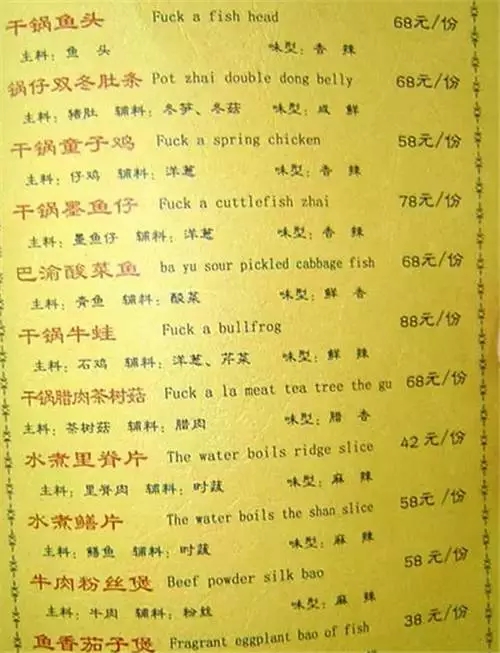 干锅鱼头 Fuck a fish head 68元/份
主料：鱼 头 味型：香 辣
锅仔双冬肚条 Pot zhai double dong belly 68元/份
主料：猪肚 辅料：冬笋、冬菇 味型：咸 鲜
干锅童子鸡 Fuck a spring chicken 58元/份
主料：仔鸡 辅料：洋葱 味型：香 辣
干锅墨鱼仔 Fuck a cuttlefish zhai 78元/份
主料：墨鱼仔 辅料：洋葱 味型：香 辣
巴渝酸菜鱼 ba yu sour pickled cabbage fish 68元/份
主料：青鱼 辅料：酸菜 味型：鲜 香
干锅牛蛙 Fuck a bullfrog 88元/份
主料：石鸡 辅料：洋葱、芹菜 味型：鲜 辣
干锅腊肉茶树菇 Fuck a la meat tea tree the gu 68元/份
主料：茶树菇 辅料：腊肉 味型：腊 香
水煮里脊片 The water boils ridge slice 42元/份
主料：里脊肉 辅料：时蔬 味型：麻 辣
水煮鳝片 The water boils the shan slice 58元/份
主料：鳝鱼 辅料：时蔬 味型：麻 辣
牛肉粉丝煲 Beef powder silk bao 58元/份
主料：牛肉 辅料：粉丝 味型：麻 辣
鱼香茄子煲 Fragrant eggplant bao of fish 38元/份